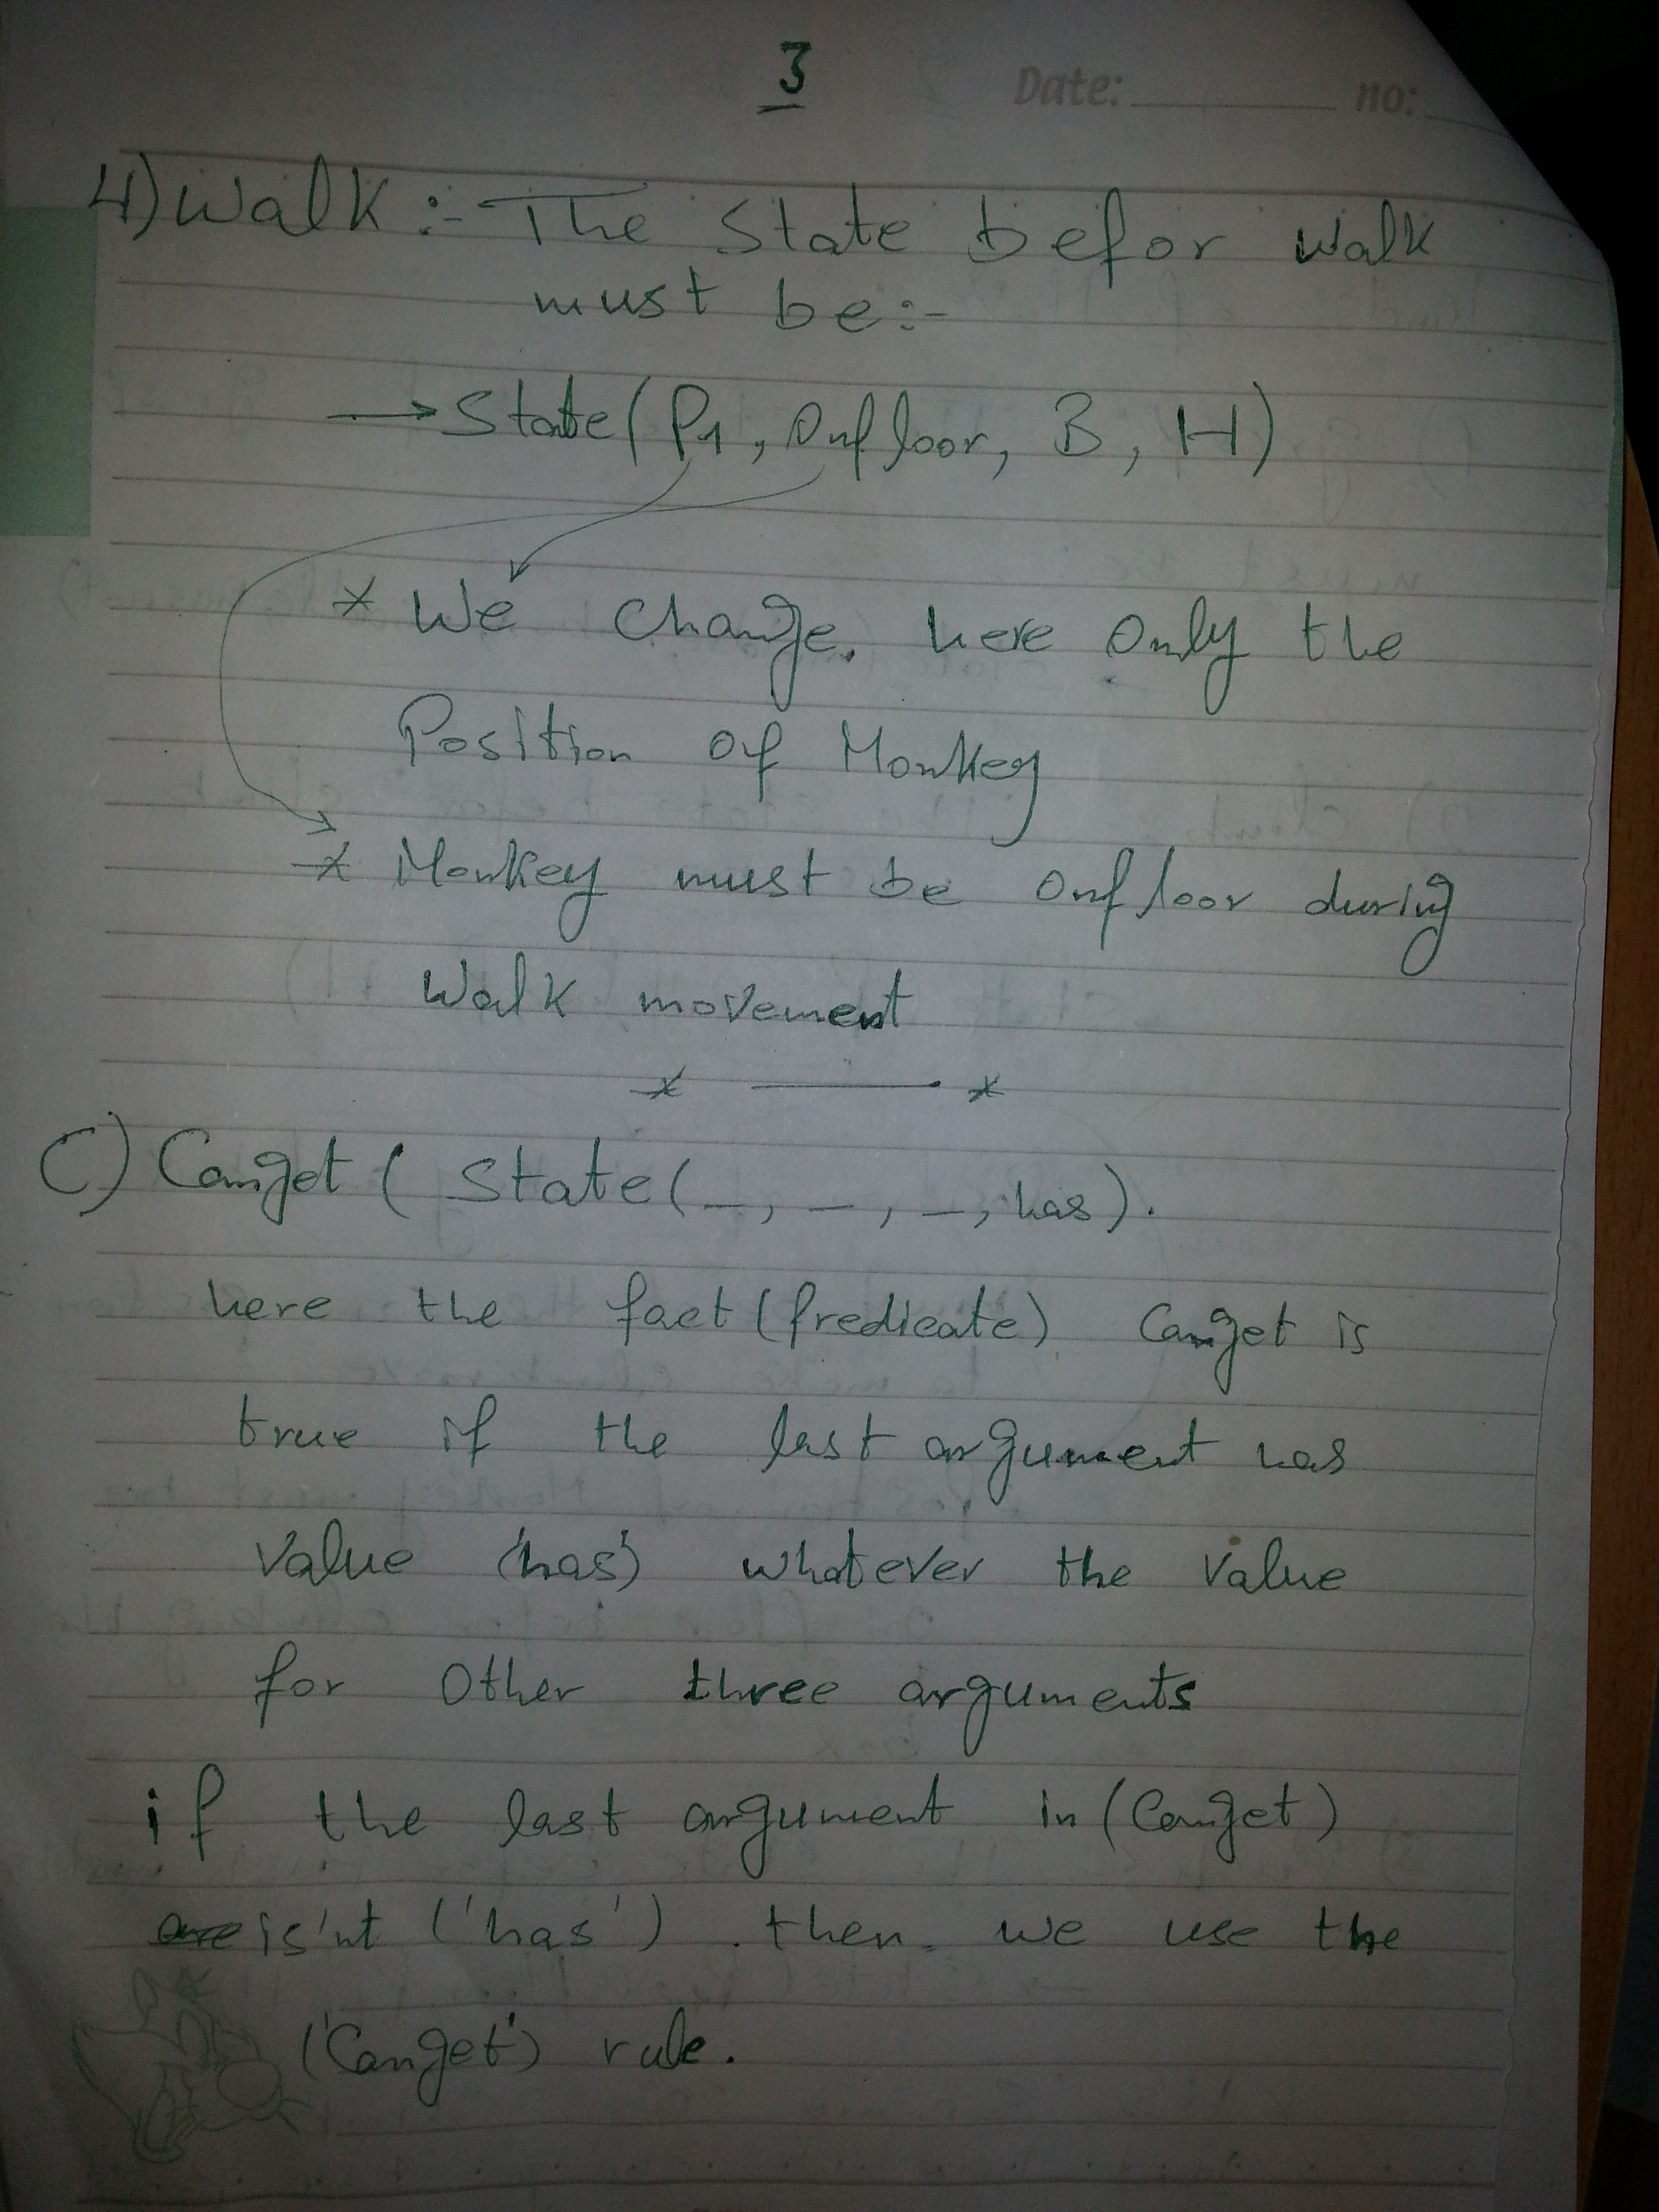 3
Date: no:
4) Walk :- The State befor walk
must be:-
→ State (P1, Onfloor, B, H)
* We change. here only the
Position of Monkey
* Monkey must be onfloor during
Walk movement
* —— *
C) Canget ( State (_, _, _, has).
here the fact (Predicate) Canget is
true if the last argument has
Value (has) whatever the Value
for Other three arguments
if the last argument in (Canget)
are is'nt ('has') . then. we use the
('Canget') rule.